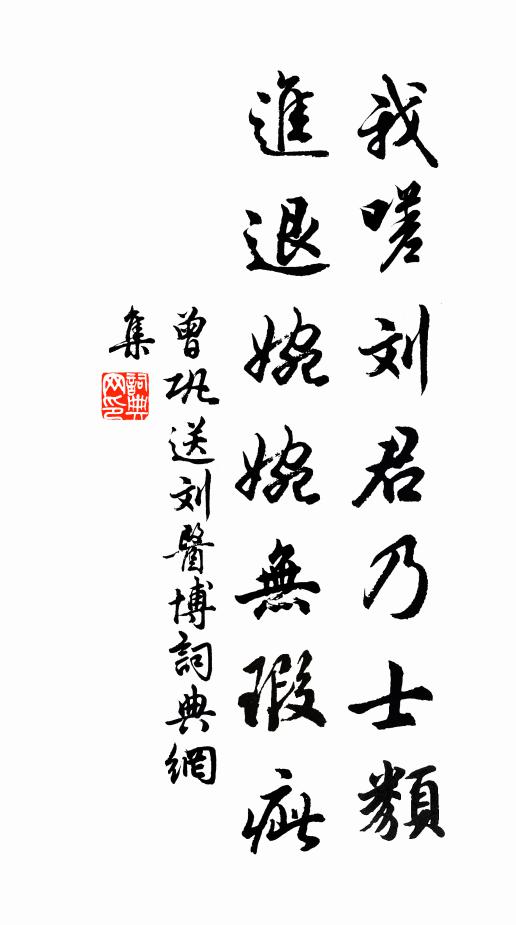 我嗟刘君乃士類
進退婉婉無瑕疵
曾巩送刘醫博詞典網
集
詞典网印